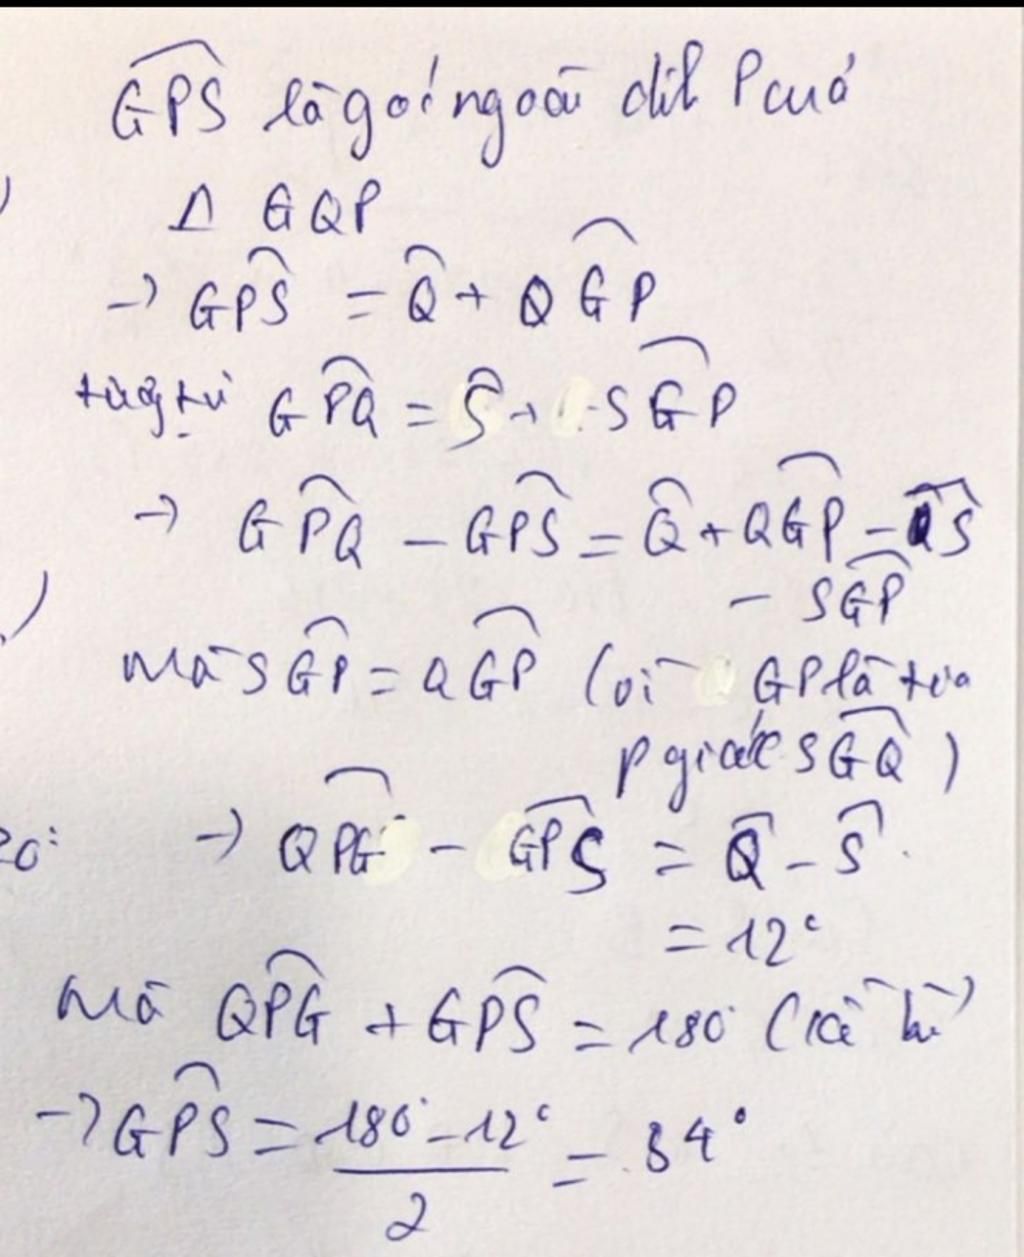 GPS là góc ngoài đỉnh P của
Δ GQP
→ GPS = Q + QGP
tương tự GPQ = S + SGP
→ GPQ - GPS = Q + QGP - S
- SGP
mà SGP = QGP (vì GP là tia
p giác SGQ)
20°
→ QPG - GPS = Q - S
= 12°
mà QPG + GPS = 180° (kề bù)
→ GPS = 180° - 12° / 2 = 84°